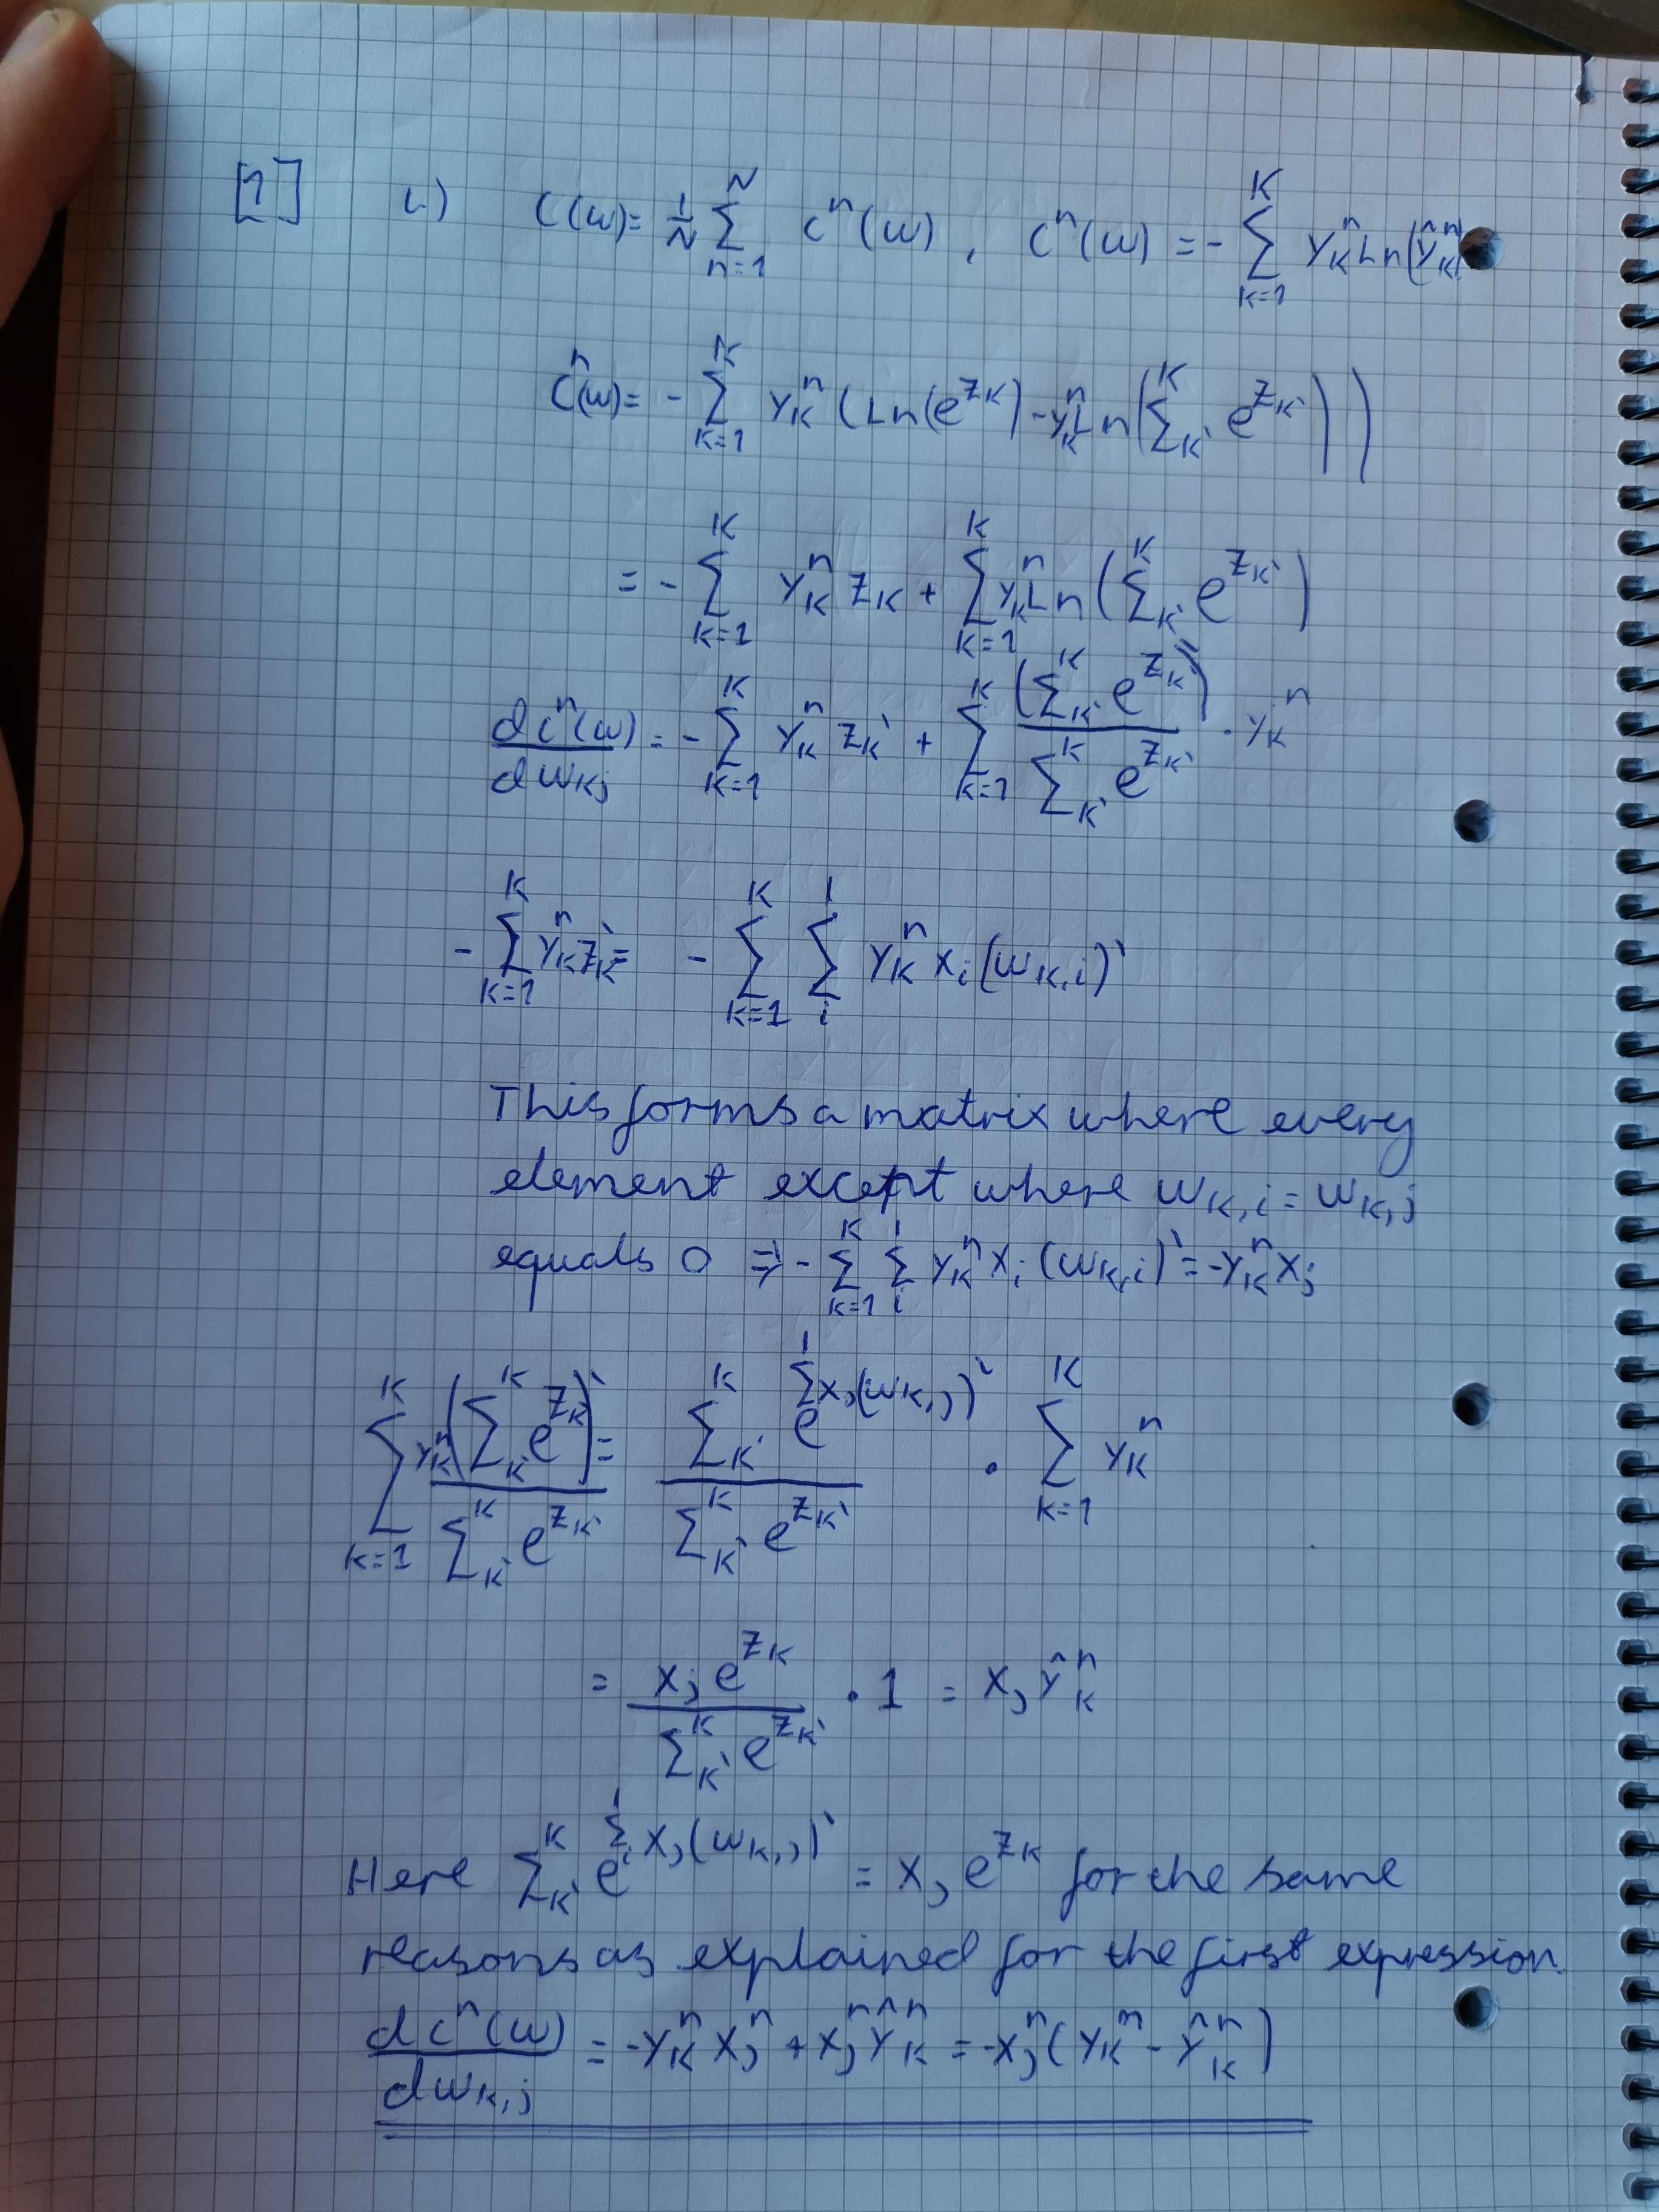 [1] L) C(w) = 1/N ∑_{n=1}^{N} C^n(w), C^n(w) = - ∑_{k=1}^{K} y_k^n Ln(ŷ_k^n)
C^n(w) = - ∑_{k=1}^{K} y_k^n (Ln(e^{z_k}) - y_k^n Ln(∑_{k'}^{K} e^{z_{k'}}))
= - ∑_{k=1}^{K} y_k^n z_k + ∑_{k=1}^{K} y_k^n Ln(∑_{k'}^{K} e^{z_{k'}})
dC^n(w)/dw_{kj} = - ∑_{k=1}^{K} y_k^n z_k' + ∑_{k=1}^{K} (∑_{k'}^{K} e^{z_{k'}})' / ∑_{k'}^{K} e^{z_{k'}} · y_k^n
- ∑_{k=1}^{K} y_k^n z_k' = - ∑_{k=1}^{K} ∑_{i}^{I} y_k^n x_i (w_{k,i})'
This forms a matrix where every
element except where w_{k,i} = w_{k,j}
equals 0 => - ∑_{k=1}^{K} ∑_{i}^{I} y_k^n x_i (w_{k,i})' = -y_k^n x_j
∑_{k=1}^{K} y_k^n (∑_{k'}^{K} e^{z_{k'}})' / ∑_{k'}^{K} e^{z_{k'}} = ∑_{k'}^{K} e^{∑^{I} x_j (w_{k,j})'} / ∑_{k'}^{K} e^{z_{k'}} · ∑_{k=1}^{K} y_k^n
= x_j e^{z_k} / ∑_{k'}^{K} e^{z_{k'}} · 1 = x_j ŷ_k^n
Here ∑_{k'}^{K} e^{∑_{i}^{I} x_j (w_{k,j})'} = x_j e^{z_k} for the same
reasons as explained for the first expression.
dC^n(w)/dw_{k,j} = -y_k^n x_j^n + x_j^n ŷ_k^n = -x_j^n (y_k^n - ŷ_k^n)